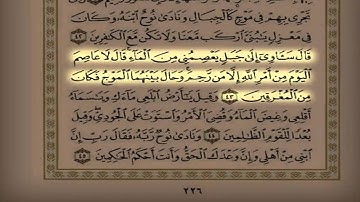 تَجْرِي بِهِمْ فِي مَوْجٍ كَالْجِبَالِ وَنَادَىٰ نُوحٌ ابْنَهُ وَكَانَ
فِي مَعْزِلٍ يَا بُنَيَّ ارْكَب مَّعَنَا وَلَا تَكُن مَّعَ الْكَافِرِينَ ٤٢
قَالَ سَآوِي إِلَىٰ جَبَلٍ يَعْصِمُنِي مِنَ الْمَاءِ قَالَ لَا عَاصِمَ
الْيَوْمَ مِنْ أَمْرِ اللَّهِ إِلَّا مَن رَّحِمَ وَحَالَ بَيْنَهُمَا الْمَوْجُ فَكَانَ
مِنَ الْمُغْرَقِينَ ٤٣ وَقِيلَ يَا أَرْضُ ابْلَعِي مَاءَكِ وَيَا سَمَاءُ
أَقْلِعِي وَغِيضَ الْمَاءُ وَقُضِيَ الْأَمْرُ وَاسْتَوَتْ عَلَى الْجُودِيِّ وَقِيلَ
بُعْدًا لِّلْقَوْمِ الظَّالِمِينَ ٤٤ وَنَادَىٰ نُوحٌ رَّبَّهُ فَقَالَ رَبِّ إِنَّ
ابْنِي مِنْ أَهْلِي وَإِنَّ وَعْدَكَ الْحَقُّ وَأَنتَ أَحْكَمُ الْحَاكِمِينَ ٤٥
٢٢٦